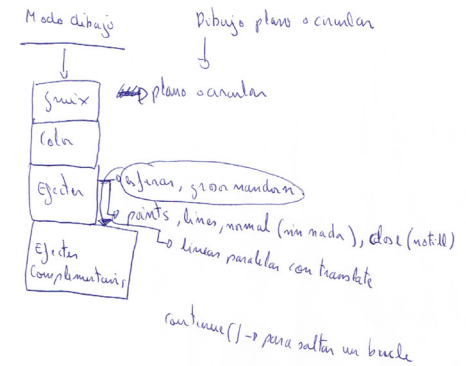 Modo dibujo
Dibujo plano o circular
gruix
plano o circular
Color
Efectes
esferas, grosor random
points, lines, normal (sin nada), close (no fill)
lineas paralelas con translate
Efectes
Complementaris
continue() → para saltar un bucle